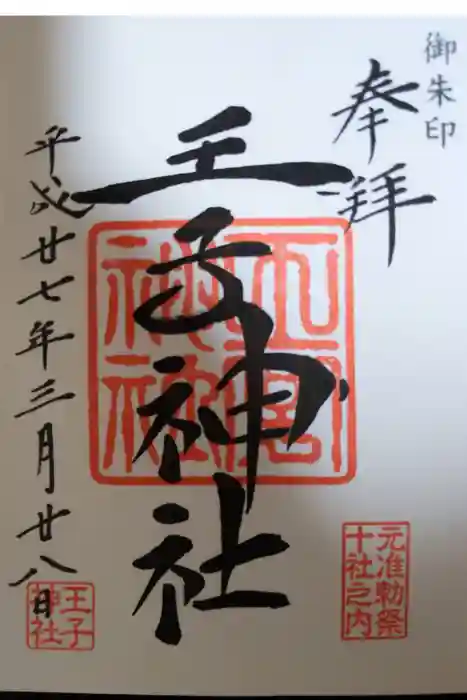 御朱印
奉拝
王子神社
平成廿七年三月廿八日
元准勅祭
十社之内
王子
神社